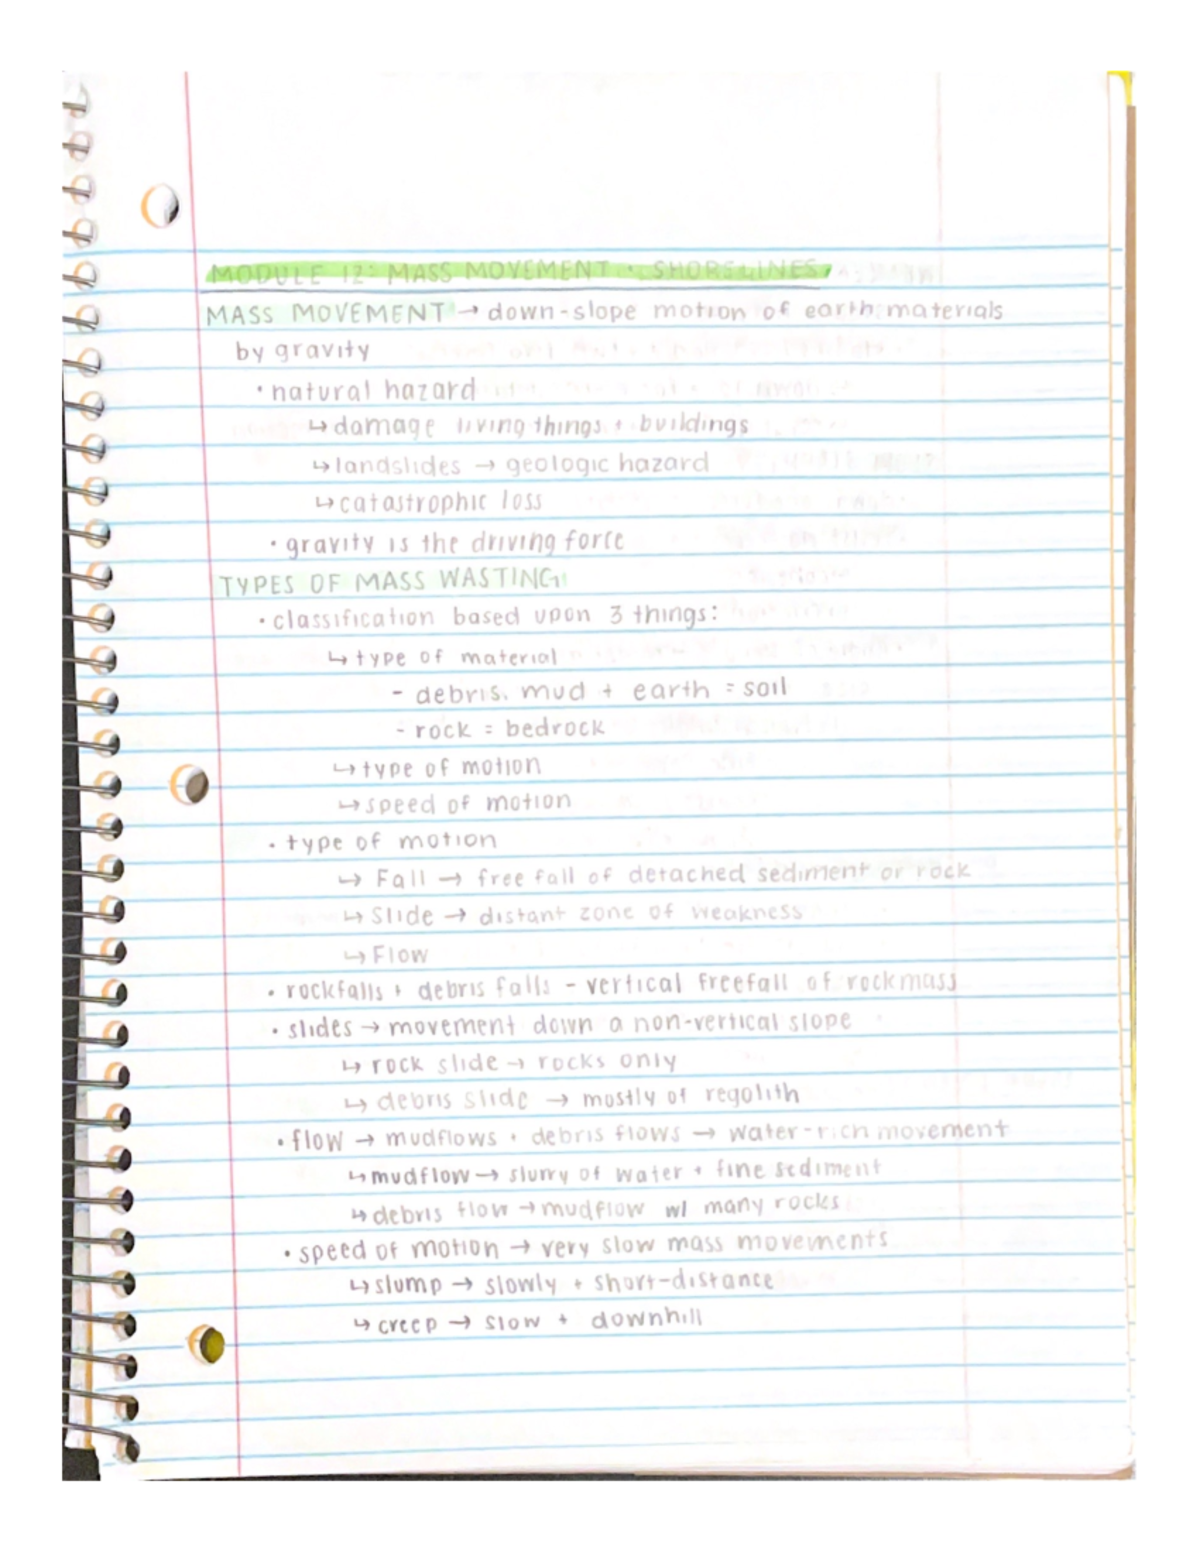 MODULE 12: MASS MOVEMENT + SHORELINES
MASS MOVEMENT → down-slope motion of earth materials
by gravity
• natural hazard
↳ damage living things + buildings
↳ landslides → geologic hazard
↳ catastrophic loss
• gravity is the driving force
TYPES OF MASS WASTING:
• classification based upon 3 things:
↳ type of material
- debris, mud + earth = soil
- rock = bedrock
↳ type of motion
↳ speed of motion
• type of motion
↳ Fall → free fall of detached sediment or rock
↳ Slide → distant zone of weakness
↳ Flow
• rockfalls + debris falls - vertical freefall of rockmass
• slides → movement down a non-vertical slope
↳ rock slide → rocks only
↳ debris slide → mostly of regolith
• flow → mudflows + debris flows → water-rich movement
↳ mudflow → slurry of water + fine sediment
↳ debris flow → mudflow w/ many rocks
• speed of motion → very slow mass movements
↳ slump → slowly + short-distance
↳ creep → slow + downhill